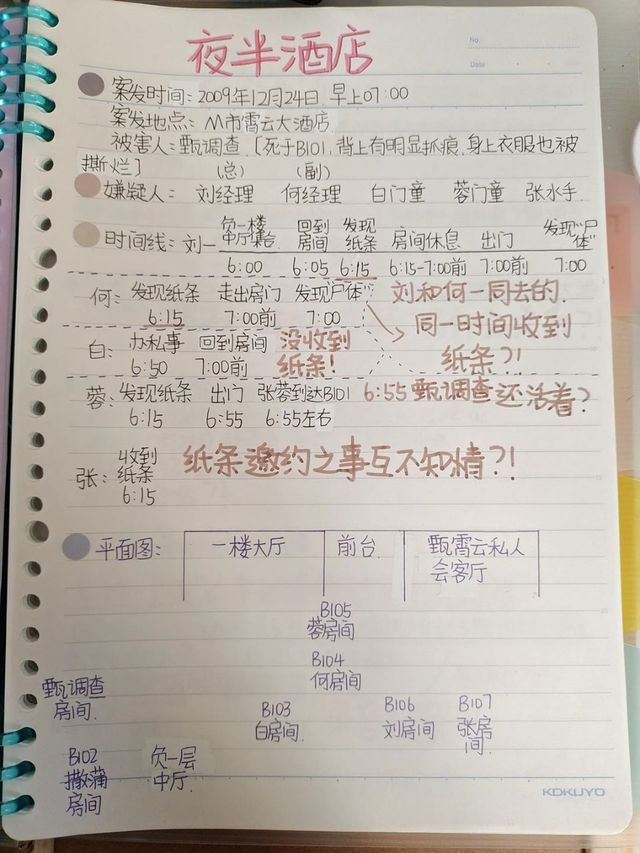 夜半酒店
No.
Date
案发时间：2009年12月24日 早上07：00
案发地点：M市霄云大酒店
被害人：甄调查．[死于B101，背上有明显抓痕，身上衣服也被
撕烂] （总） （副）
嫌疑人： 刘经理 何经理 白门童 蓉门童 张水手．
时间线：刘— 负一楼中厅集合 回到房间 发现纸条 房间休息 出门 发现"尸体"
6:00 6:05 6:15 6:15-7:00前 7:00前 7:00
何：发现纸条 走出房门 发现"尸体"
6:15 7:00前 7:00
刘和何一同去的．
同一时间收到
纸条？！
白：办私事 回到房间 没收到
6:50 7:00前 纸条！
蓉：发现纸条 出门 张蓉到达B101 6:55甄调查还活着？
6:15 6:55 6:55左右
张：收到纸条 6:15
纸条邀约之事互不知情？！
平面图： 一楼大厅 前台 甄霄云私人
会客厅
B105
蓉房间
B104
何房间
甄调查
房间．
B103
白房间
B106
刘房间
B107
张房
间．
B102
房间
负一层
中厅．
KOKUYO